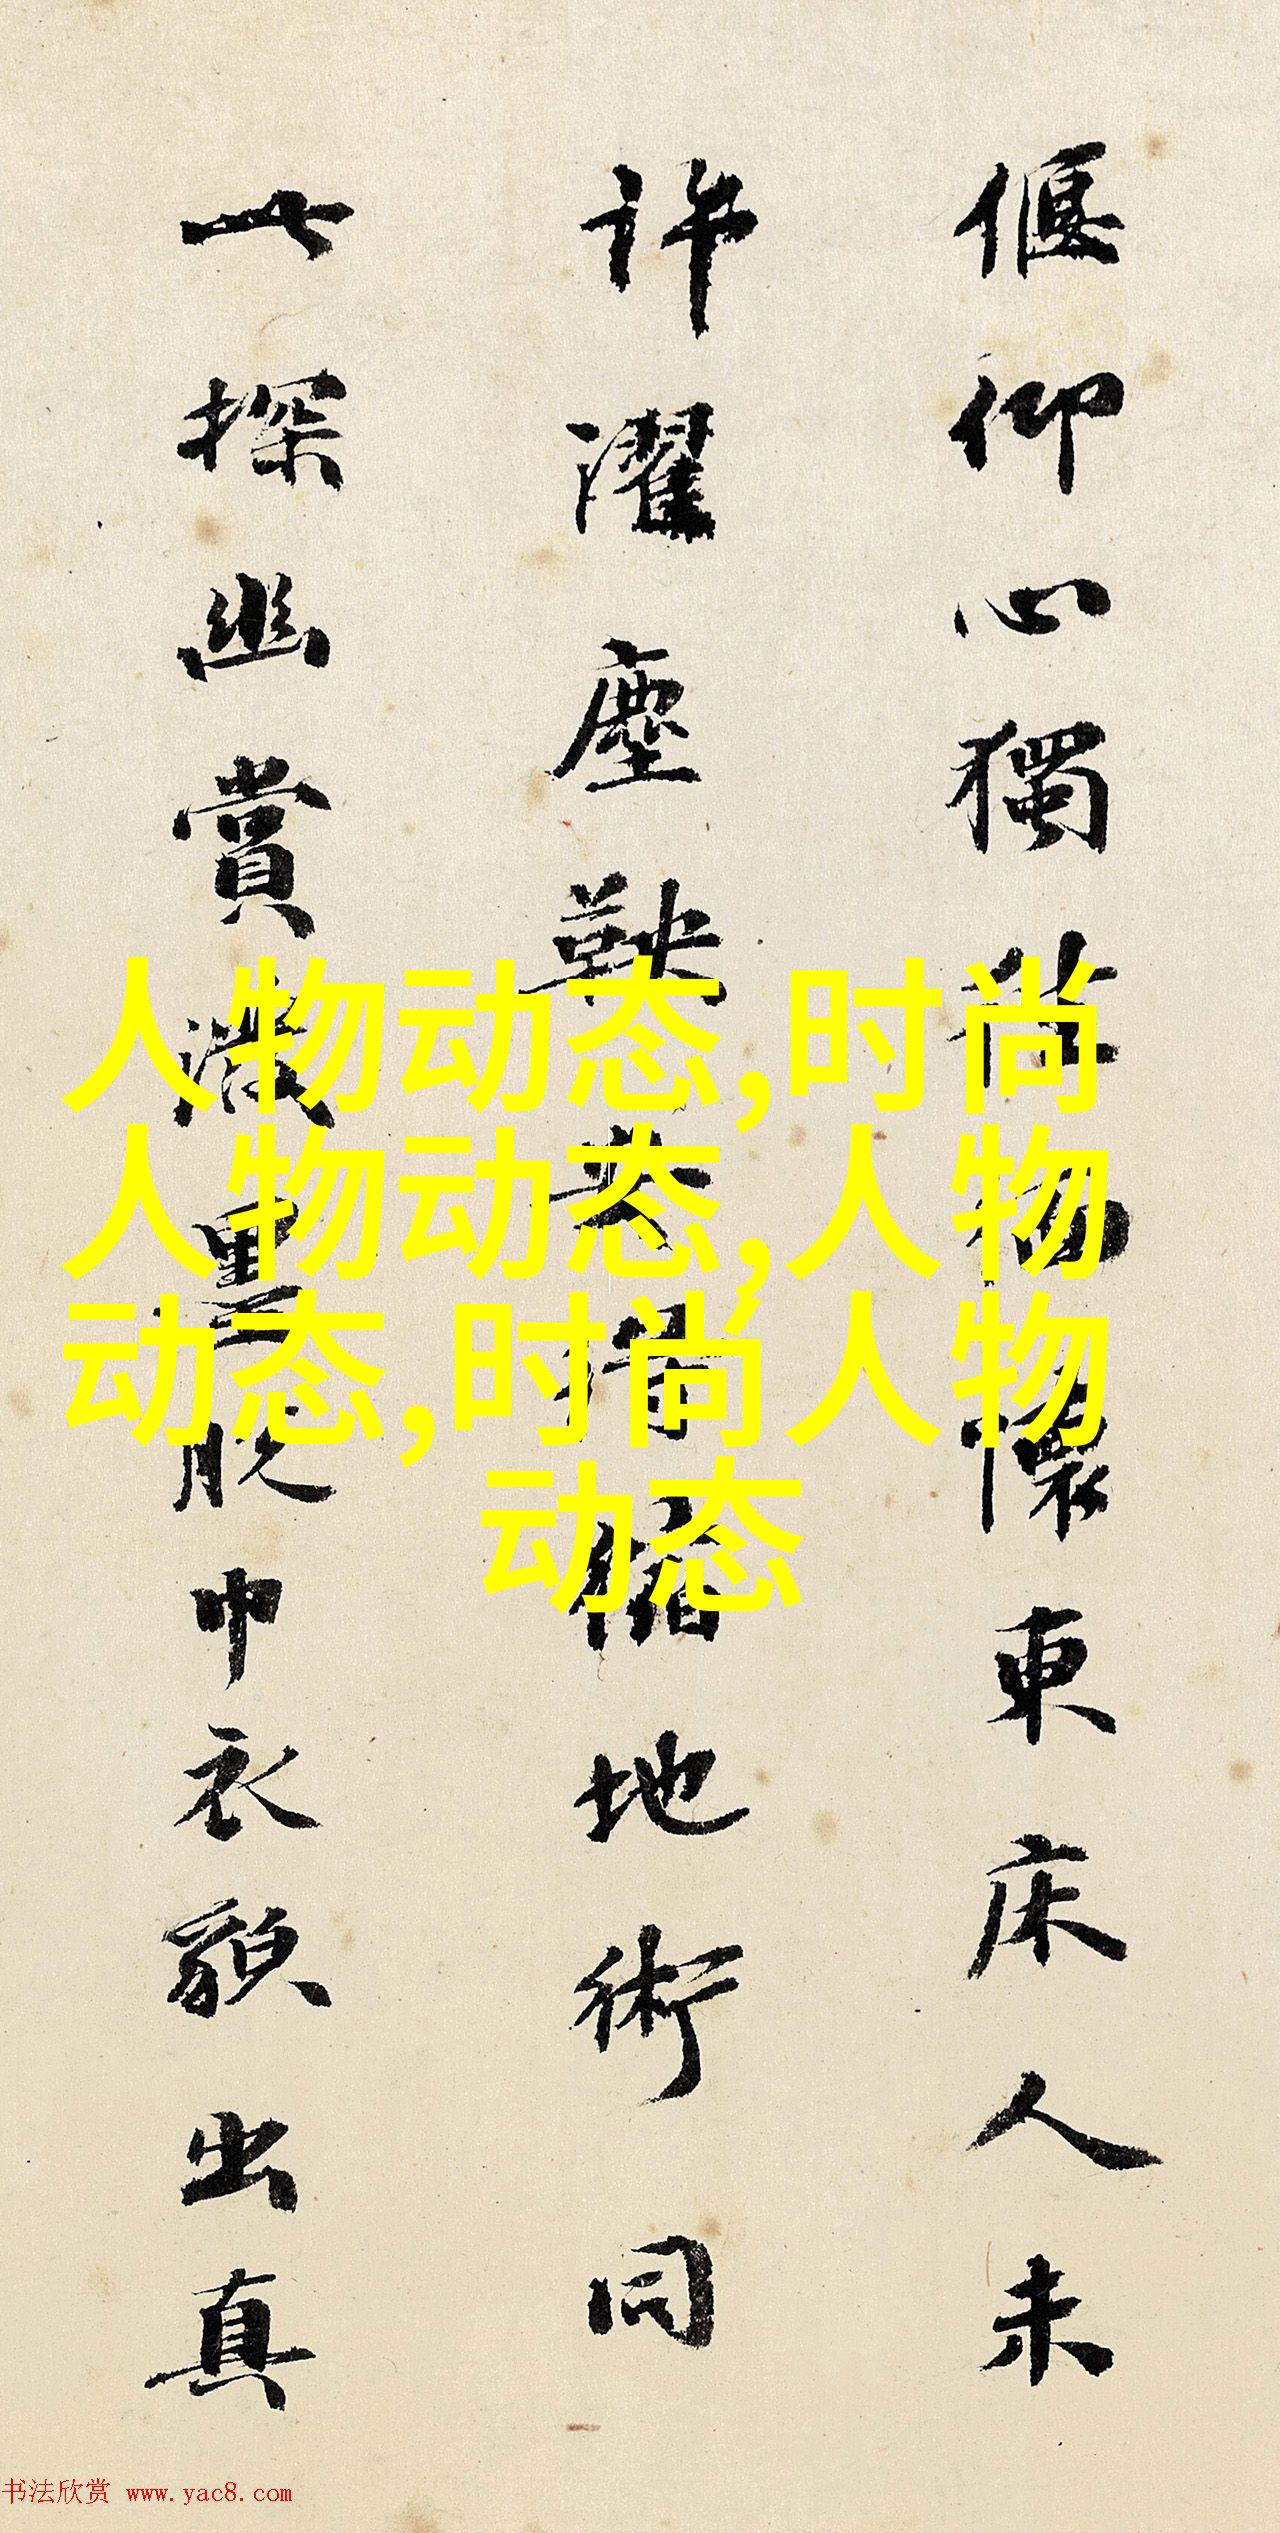 偃仰心獨 懷東床人未
許濯塵鞅 地術同
一探幽賞 墨脱巾衣貌出真
人物动态,时尚
人物动态,人物
动态,时尚人物
动态
书法欣赏 www.yac8.com